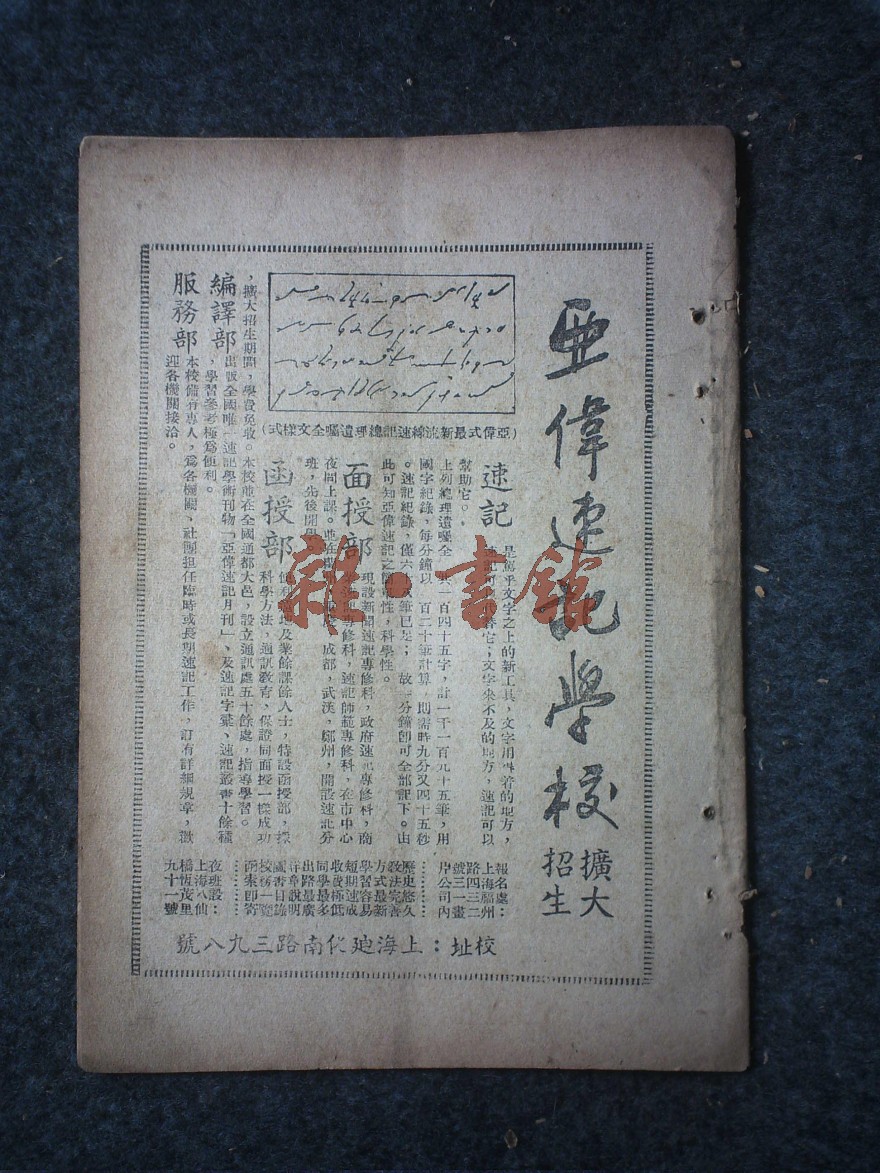 亞偉速記學校
擴大
招生
(亞偉式最新流線速記總理遺囑全文樣式)
速記
是駕乎文字之上的新工具,文字用
着的地方,
速記可
它;文字來不及的地方,速記可以
幫助它。
上列總理遺囑全
一百四十五字,計一千一百九十五筆,用
國字紀錄,每分鐘以一百二十筆計算,則需時九分又四十五秒
。速記紀錄,僅六
筆已足;故一分鐘卽可全部記下。由
此可知亞偉速記之
性,科學性。
面授部
現設新聞速記專修科,政府速記專修科,商
專修科,速記師範專修科,在市中心
夜間上課。並在
成都,武漢,鄭州,開設速記分
班,先後開學
函授部
便利
地及業餘課餘人士,特設函授部,採
科學方法,通訊敎育,保證同面授一樣成功
,擴大招生期間,學費免收。本校並在全國通都大邑,設立通訊處五十餘處,指導學習。
編譯部
出版全國唯一速記學術刊物「亞偉速記月刊」、及速記字彙、速記叢書十餘種
,學習參考極爲便利。
服務部
本校備有專人,爲各機關,社團担任臨時或長期速記工作,訂有詳細規章,歡
迎各機關接洽。
報名處:
上海福州
路四三二
號三一畫
片公司內
歷史悠久
敎法完善
方式最新
學習容易
短期速成
收費極低
同學最多
出路最廣
詳章說明
圖書目錄
校務一覽
函索卽寄
夜班設:
上海八仙
橋恆茂里
九十一號
校址:上海迪化南路三九八號
雜·書館